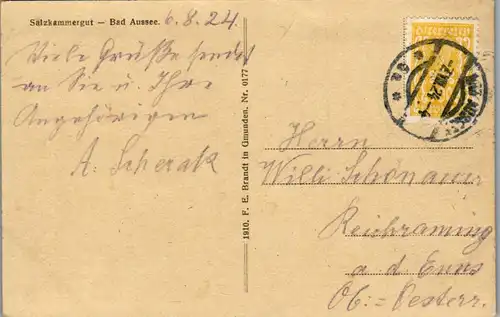 Salzkammergut — Bad Aussee. 6.8.24.
Viele Grüße sendet
an Sie u. Ihre
Angehörigen
A. Scherak
1910. F. E. Brandt in Gmunden. Nr. 0177
Herrn
Willi Schönauer
Reichraming
a d Enns
Ob:=Oesterr.